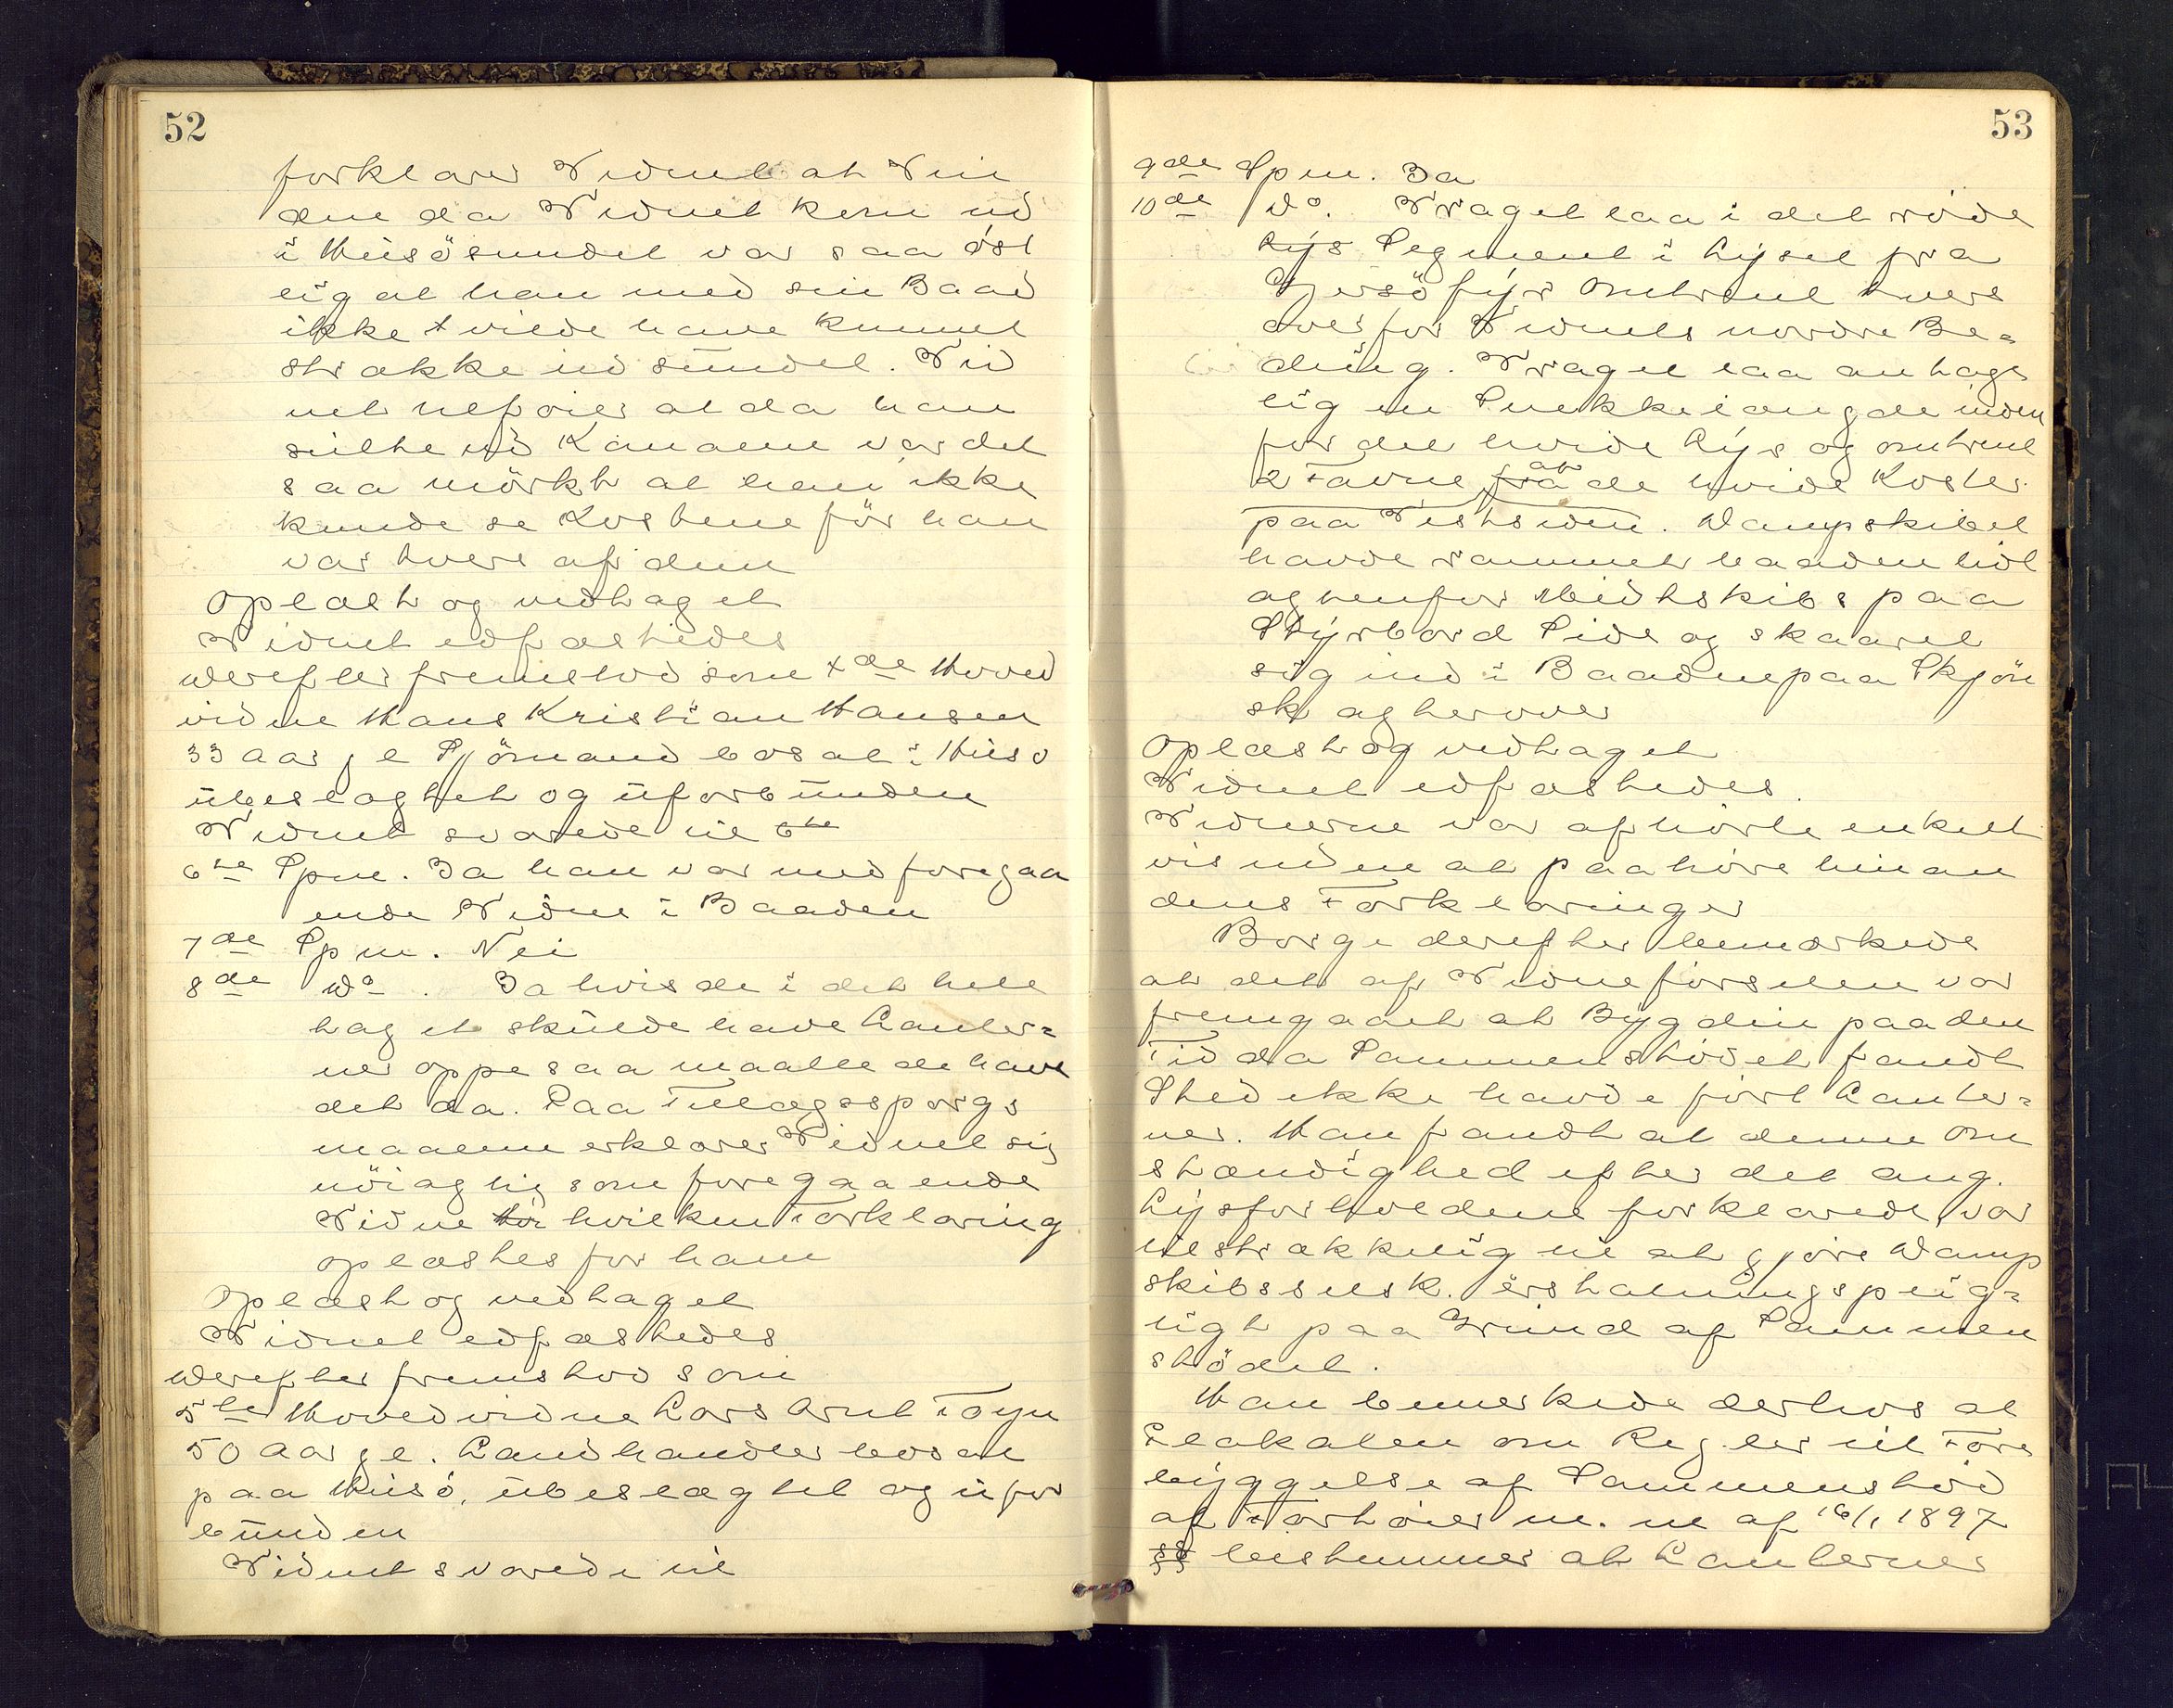 52
forklarer Vidnet at Vin
den da Vidnet kom ud
i Husösundet var saa öst
lig at han med sin Baad
ikke vilde have kunnet
strække ud sundet. Vid
net tilføier at da han
seilte ud Kanalen var det
saa mörkt at han ikke
kunde se Kostene för han
var tvers af dem
Oplæst og vedtaget
Vidnet edfæstedes
Derefter fremstod som 4de Hoved
vidne Hans Kristian Hansen
33 Aar gl Sjömand bosat i Husö
ubeslægtet og uforbunden
Vidnet svarede til 6te
6te Spm. Ja han var med foregaa
ende Vidne i Baaden
7de Spm. Nei
8de Do. Ja hvis de i det hele
taget skulde have Lanter=
ner oppe saa maatte de have
det da. Paa Tillægsspørgs
maalene erklærer Vidnet sig
nöiagtig som foregaaende
Vidne hvilken Forklaring
oplæstes for ham
Oplæst og vedtaget
Vidnet edfæstedes
Derefter fremstod som
5te Hovedvidne Lars Arnt Föyn
50 Aar gl. Landhandler bosat
paa Husö, ubeslægtet og ufor
bunden
Vidnet svarede til
53
9de Spm. Ja
10de Do. Vraget laa i det röde
Lys Segment i Lyset fra
Gjersöfyr omtrent tvers
over for Vidnets nordre Be=
ding. Vraget laa antage
lig en Snekkelængde inden
for det hvide Lys og omtrent
2 Favne fra at de hvide Koster
paa Vestsiden. Dampskibet
havde rammet baaden lidt
agtenfor Midtskibs paa
Styrbord Side og skaaret
sig ind i Baaden paa Skjön
sk agterover
Oplæst og vedtaget
Vidnet edfæstedes.
Vidnerne var afhørte enkelt
vis uden at paahöre hinan
dens Forklaringer
Borge derefter bemærkede
at det af Vidneførselen var
fremgaaet at Bygdin paa den
Tid da Sammenstödet fandt
Sted ikke havde fört Lanter=
ner. Han fandt at denne om
stændighed efter det ang.
Lysforholdene forklarede, var
tilstrækkelig til at gjöre Damp
skibsselsk. erstatningspligt=
ligt paa Grund af Sammen
stödet.
Han bemerkede derhos at
Plakaten om Regler til Fore
byggelse af Sammenstöd
af Fartøier m. m af 16/1 1897
§§ bestemmer at Lanternes